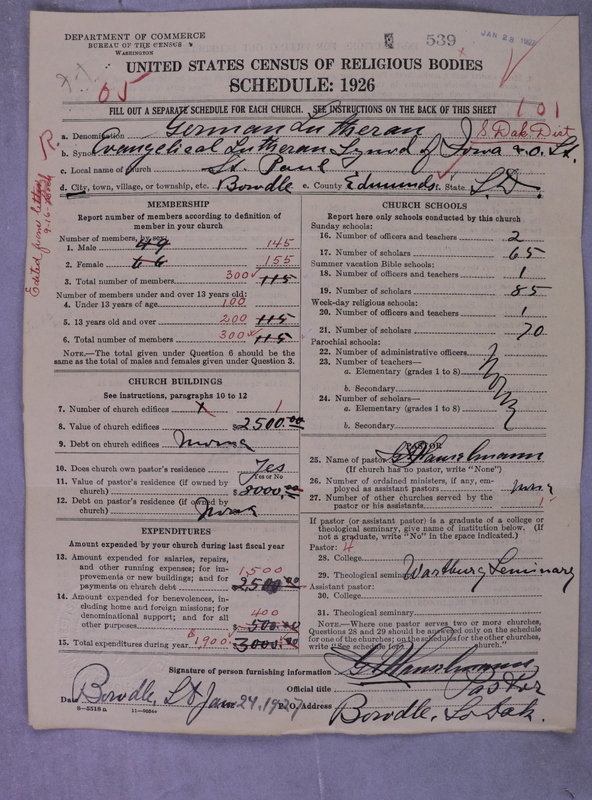 DEPARTMENT OF COMMERCE
BUREAU OF THE CENSUS
WASHINGTON
539
JAN 28 1927
UNITED STATES CENSUS OF RELIGIOUS BODIES
SCHEDULE: 1926
05
FILL OUT A SEPARATE SCHEDULE FOR EACH CHURCH. SEE INSTRUCTIONS ON THE BACK OF THIS SHEET
101
a. Denomination German Lutheran
S Dak Dist
b. Synod Evangelical Lutheran Synod of Iowa & O. St.
c. Local name of church St. Paul
d. City, town, village, or township, etc. Bowdle e. County Edmunds f. State S.D.
Edited from letter
MEMBERSHIP
Report number of members according to definition of
member in your church
Number of members, by sex:
1. Male 49 145
2. Female 66 155
3. Total number of members 300 115
Number of members under and over 13 years old:
4. Under 13 years of age 100
5. 13 years old and over 200 115
6. Total number of members 300 115
NOTE.—The total given under Question 6 should be the
same as the total of males and females given under Question 3.
CHURCH BUILDINGS
See instructions, paragraphs 10 to 12
7. Number of church edifices x 1
8. Value of church edifices $ 2500.00
9. Debt on church edifices none
10. Does church own pastor's residence Yes
Yes or No
11. Value of pastor's residence (if owned by
church) $ 8000.00
12. Debt on pastor's residence (if owned by
church) none
EXPENDITURES
Amount expended by your church during last fiscal year
13. Amount expended for salaries, repairs,
and other running expenses; for im-
provements or new buildings; and for
payments on church debt 1,500 2500.00
14. Amount expended for benevolences, in-
cluding home and foreign missions; for
denominational support; and for all
other purposes 400 $ 500.00
15. Total expenditures during year $1,900 3000.00
CHURCH SCHOOLS
Report here only schools conducted by this church
Sunday schools:
16. Number of officers and teachers 2
17. Number of scholars 65
Summer vacation Bible schools:
18. Number of officers and teachers 1
19. Number of scholars 85
Week-day religious schools:
20. Number of officers and teachers 1
21. Number of scholars 70
Parochial schools:
22. Number of administrative officers
23. Number of teachers—
a. Elementary (grades 1 to 8)
b. Secondary
24. Number of scholars—
a. Elementary (grades 1 to 8)
b. Secondary
none
PASTOR
25. Name of pastor
(If church has no pastor, write "None")
26. Number of ordained ministers, if any, em-
ployed as assistant pastors none
27. Number of other churches served by the
pastor or his assistants 1
If pastor (or assistant pastor) is a graduate of a college or
theological seminary, give name of institution below. (If
not a graduate, write "No" in the space indicated.)
Pastor: 4
28. College
29. Theological seminary Wartburg Seminary
Assistant pastor:
30. College
31. Theological seminary
NOTE.—Where one pastor serves two or more churches,
Questions 28 and 29 should be answered only on the schedule
for one of the churches; on the schedules for the other churches,
write "See schedule for church."
Signature of person furnishing information
Official title Pastor
Date Bowdle, S.D Jan 24, 1927 P.O. Address Bowdle, So Dak.
8-5518a 11-9584